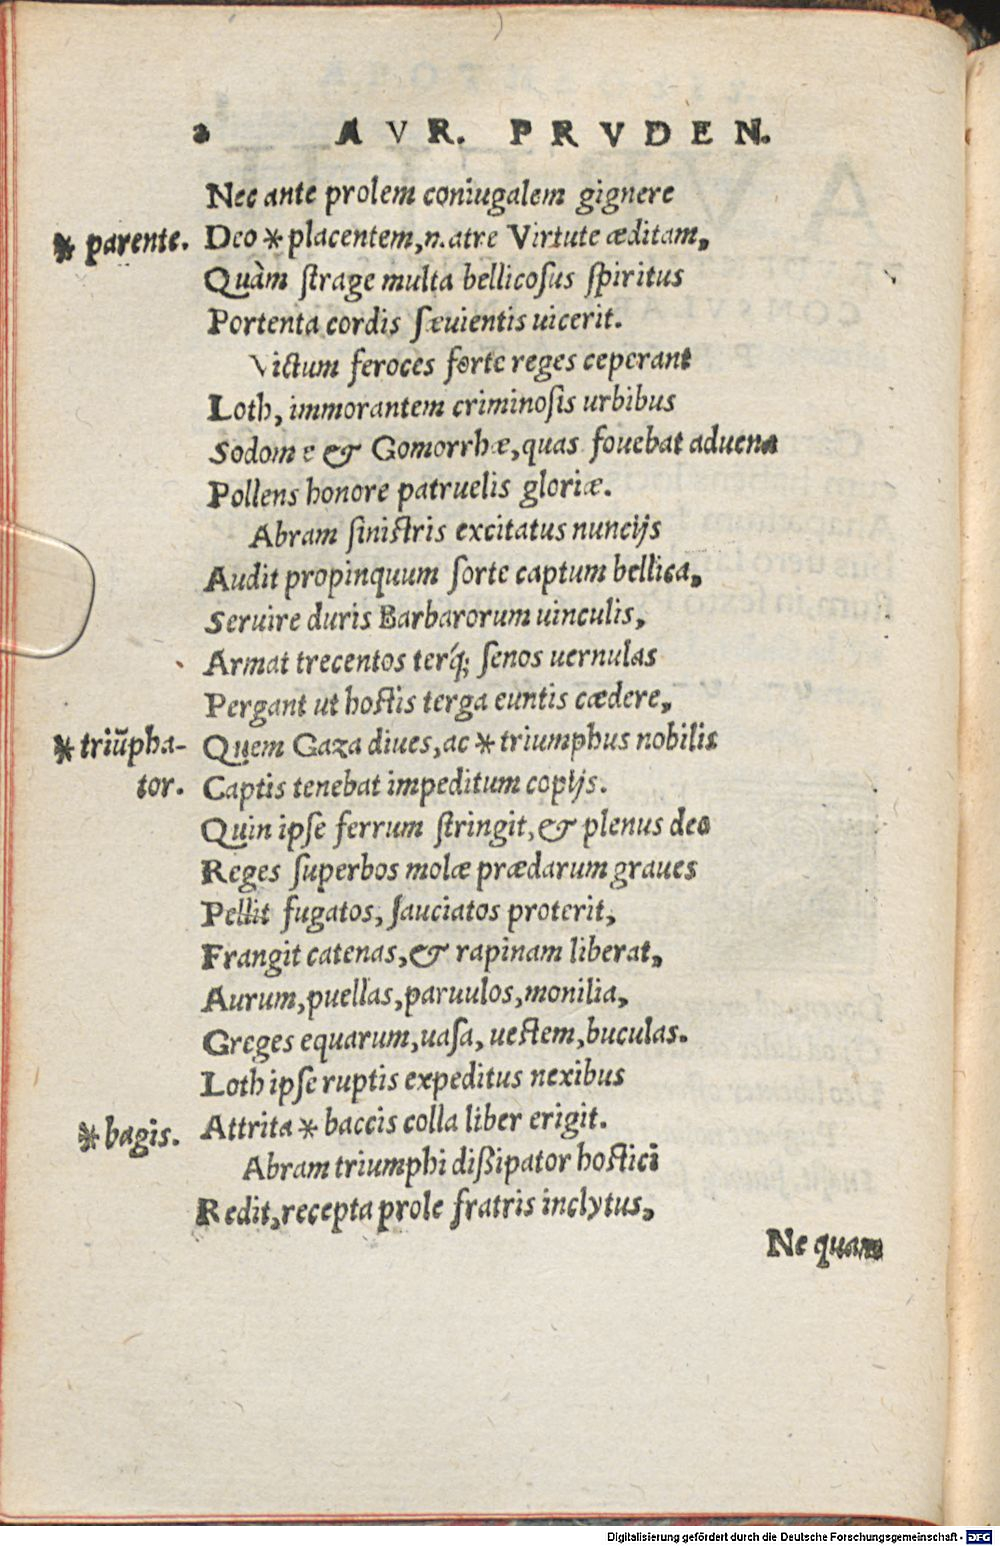 2 AVR. PRVDEN.
Nec ante prolem coniugalem gignere
* parente. Deo * placentem, matre Virtute æditam,
Quàm ſtrage multa bellicoſus ſpiritus
Portenta cordis ſæuientis uicerit.
Victum feroces forte reges ceperant
Loth, immorantem criminoſis urbibus
Sodomæ & Gomorrhæ, quas fouebat aduena
Pollens honore patruelis gloriæ.
Abram ſiniſtris excitatus nuncijs
Audit propinquum ſorte captum bellica,
Seruire duris Barbarorum uinculis,
Armat trecentos terq́; ſenos uernulas
Pergant ut hoſtis terga euntis cædere,
* triũpha- Quem Gaza diues, ac * triumphus nobilis
tor. Captis tenebat impeditum copijs.
Quin ipſe ferrum ſtringit, & plenus deo
Reges ſuperbos molæ prædarum graues
Pellit fugatos, ſauciatos proterit,
Frangit catenas, & rapinam liberat,
Aurum, puellas, paruulos, monilia,
Greges equarum, uaſa, ueſtem, buculas.
Loth ipſe ruptis expeditus nexibus
* bagis. Attrita * baccis colla liber erigit.
Abram triumphi dißipator hoſtici
Redit, recepta prole fratris inclytus,
Ne quam
Digitalisierung gefördert durch die Deutsche Forschungsgemeinschaft - DFG